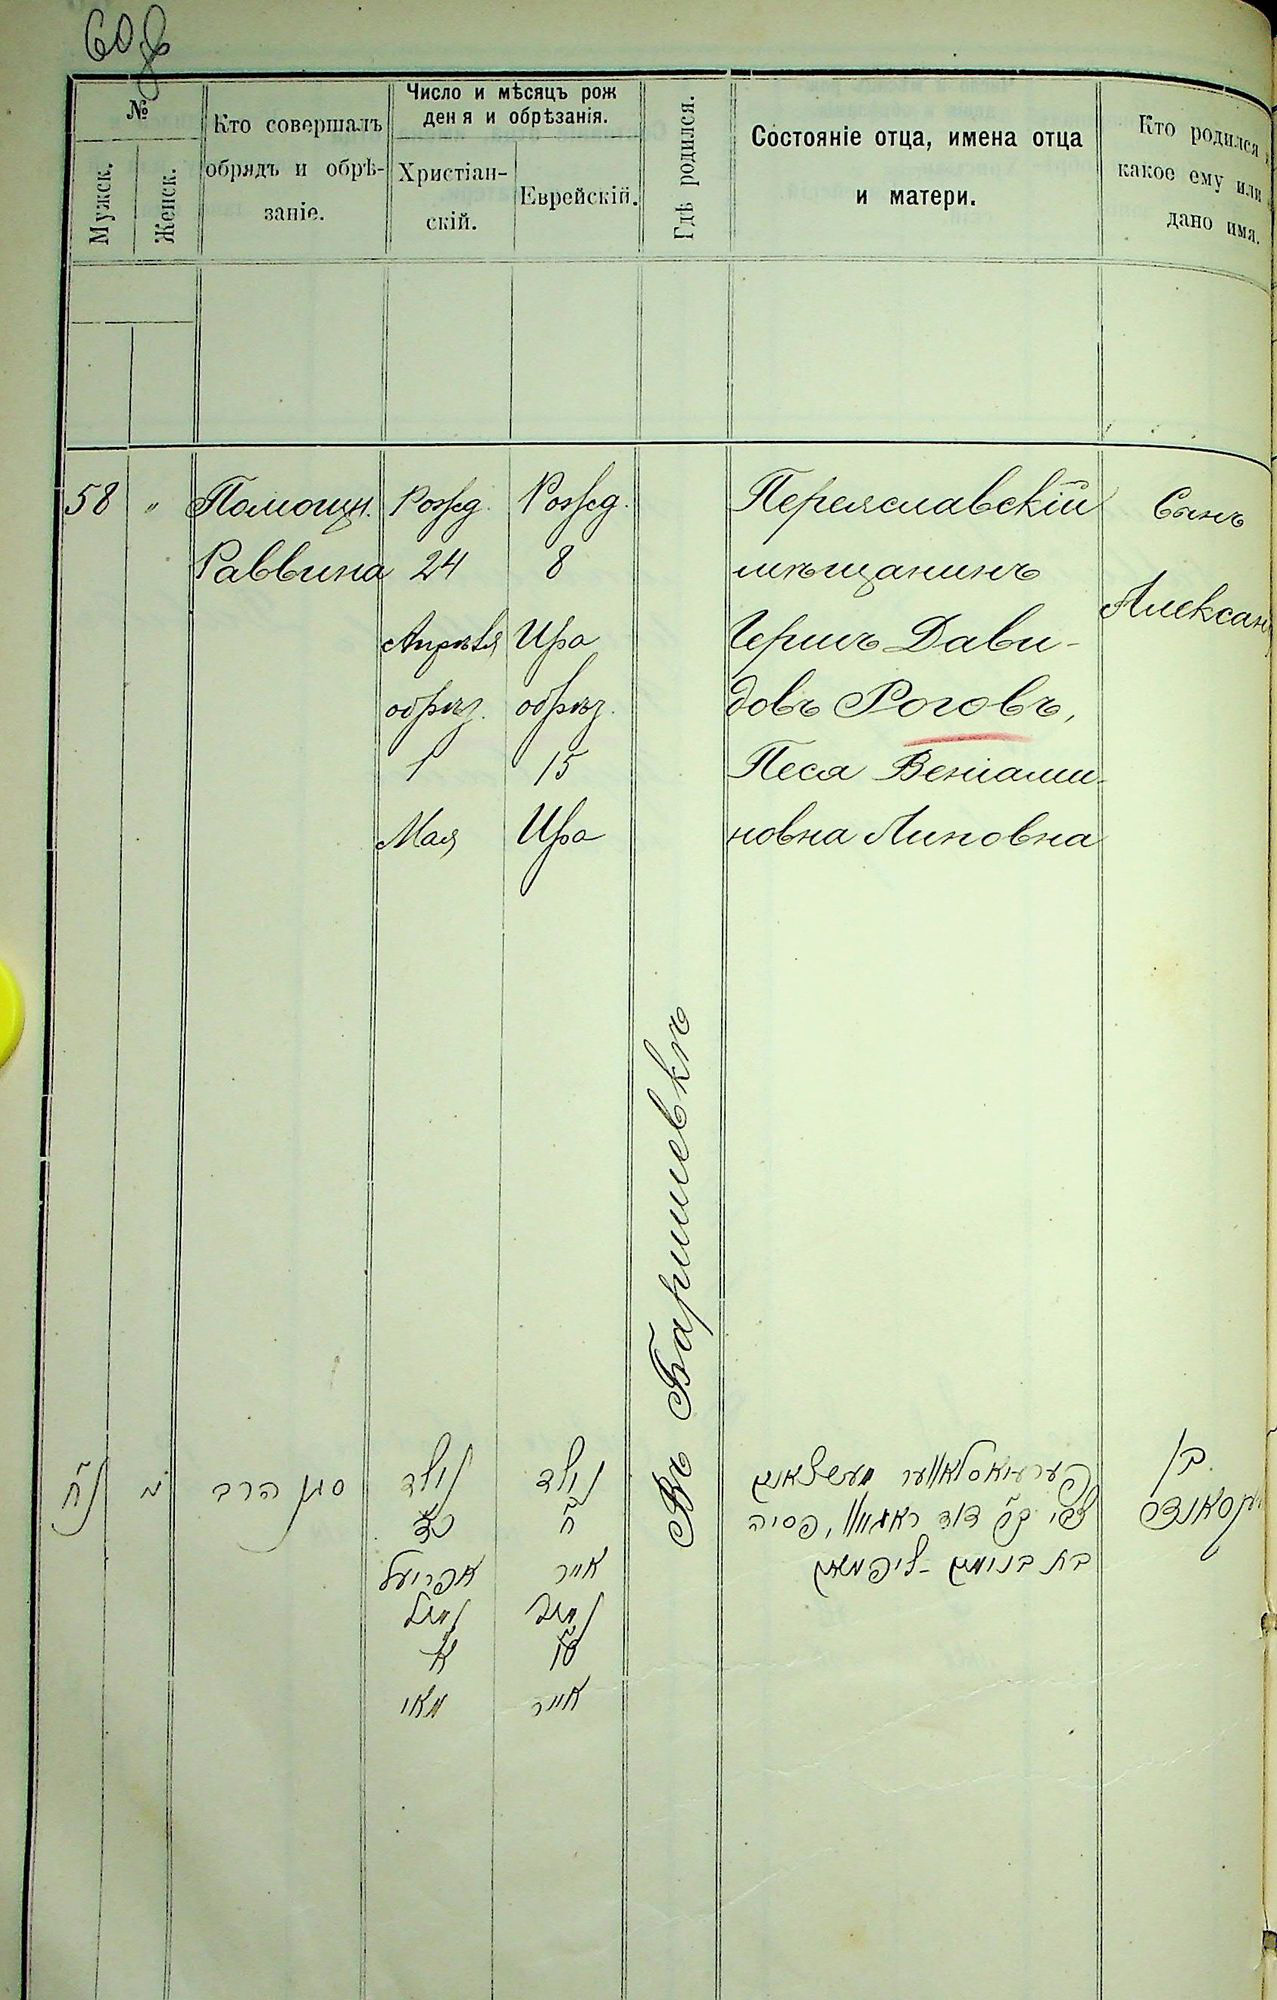 60 об
№
Мужск.
Женск.
Кто совершалъ
обрядъ и обрѣ-
заніе.
Число и мѣсяцъ рож
ден я и обрѣзанія.
Христіан-
скій.
Еврейскій.
Гдѣ родился.
Состояніе отца, имена отца
и матери.
Кто родился
какое ему или
дано имя.
58
"
Помощн.
Раввина
Рожд.
24
Апрѣля
обрѣз.
1
Мая
Рожд.
8
Ира
обрѣз.
15
Ира
Въ Баришевкѣ
Переяславскій
мѣщанинъ
Гершъ Дави-
довъ Роговъ,
Песя Веніами-
новна Липовна
Сынъ
Алексан
נ״ח
סגן הרב
נולד
כ״ד
אפריעל
נימול
א
מאי
נולד
ח׳
אייר
נימול
ט״ו
אייר
פערעיאסלאווער מעשצאנין
דוד ראגוו, פסיה
בת בנימין ליפמאן
בן